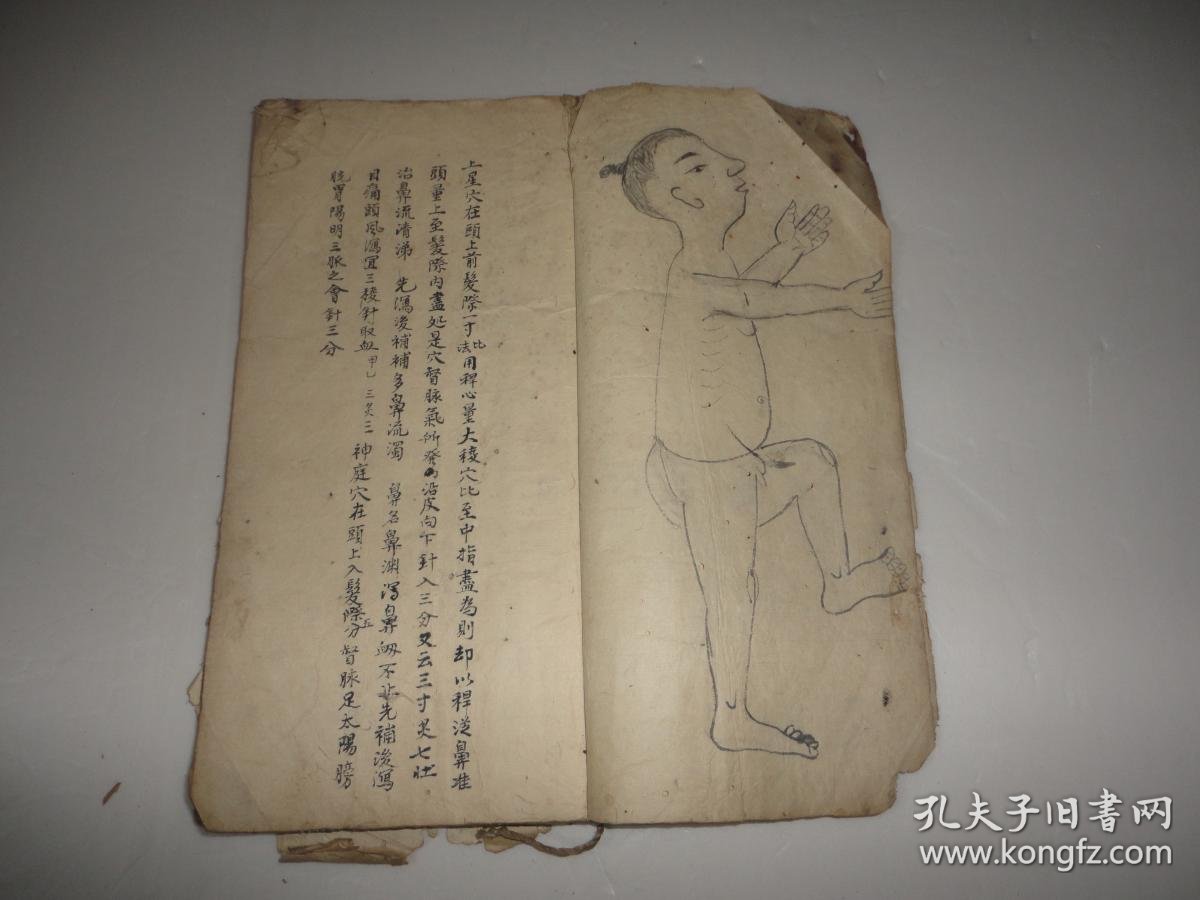 上星穴在頭上前髮際一寸比法用稈心量大稜穴比至中指盡為則却以稈從鼻准
頭量上至髮際内盡処是穴督脉氣所發沿皮向下針入三分又云三寸炙七壯
治鼻流清涕 先瀉後補補多鼻流濁 鼻名鼻渊瀉鼻衂不止先補後瀉
目痛頭風瀉宜三稜針取血甲乙三炙三 神庭穴在頭上入髮際五分督脉足太陽膀
胱胃陽明三脈之會針三分
孔夫子旧书网
www.kongfz.com